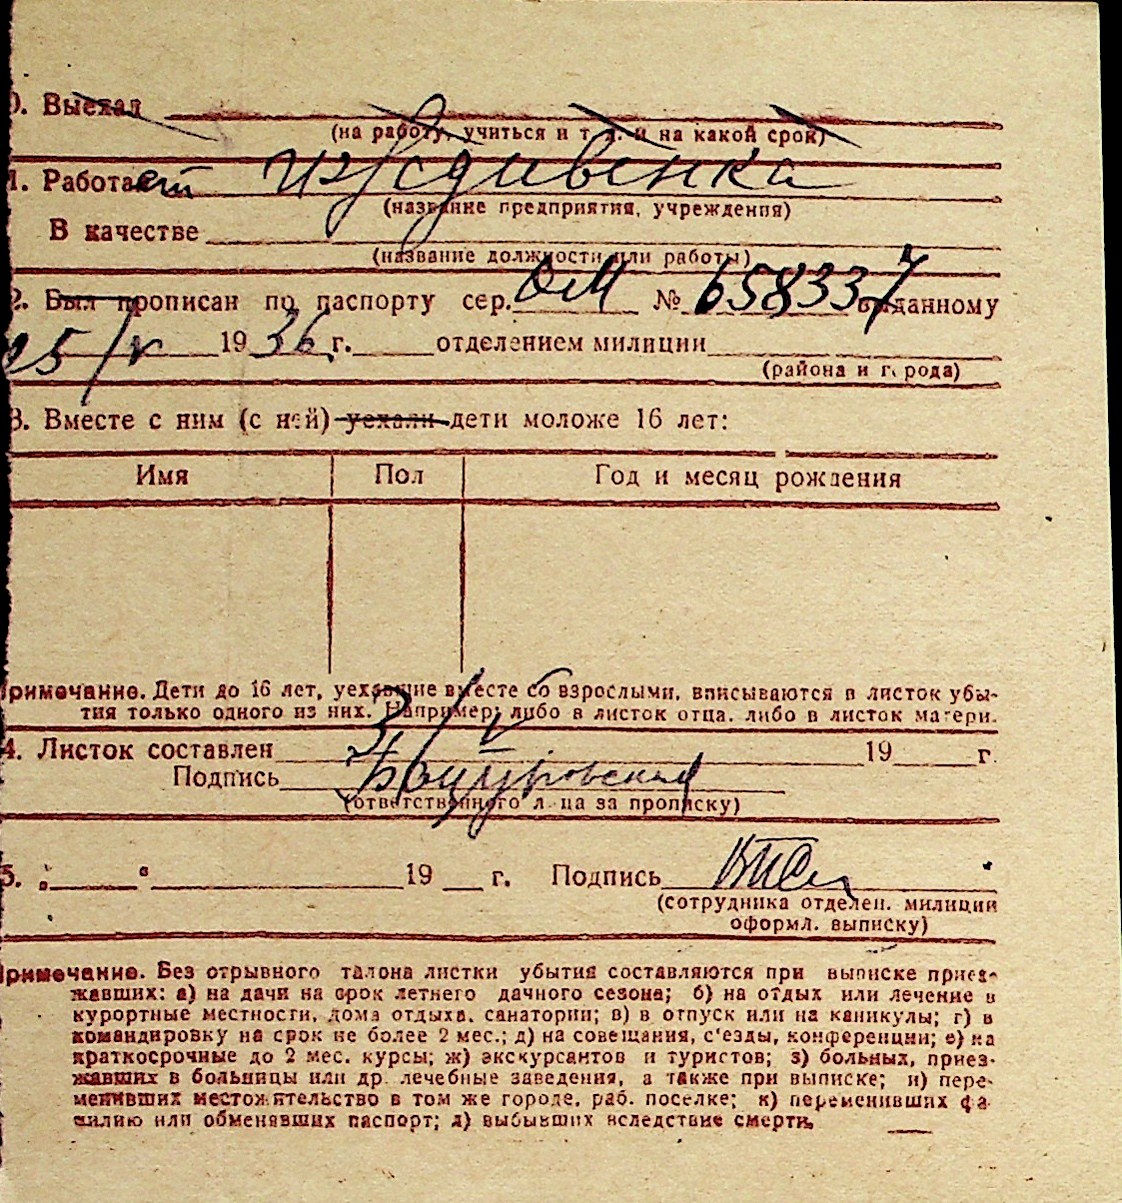 0. Выехал
(на работу, учиться и т. д. и на какой срок)
1. Работает иждивенка
(название предприятия, учреждения)
В качестве
(название должности или работы)
2. Был прописан по паспорту сер. № 658337 выданному
25/V 1936 г. отделением милиции
(района и города)
3. Вместе с ним (с ней) уехали дети моложе 16 лет:
Имя Пол Год и месяц рождения
Примечание. Дети до 16 лет, уехавшие вместе со взрослыми, вписываются в листок убы-
тия только одного из них. Например: либо в листок отца, либо в листок матери.
4. Листок составлен 3/V 19 г.
Подпись
(ответственного лица за прописку)
5. „ “ 19 г. Подпись
(сотрудника отделен. милиции
оформл. выписку)
Примечание. Без отрывного талона листки убытия составляются при выписке приез-
жавших: а) на дачи на срок летнего дачного сезона; б) на отдых или лечение в
курортные местности, дома отдыха, санатории; в) в отпуск или на каникулы; г) в
командировку на срок не более 2 мес.; д) на совещания, с'езды, конференции; е) на
краткосрочные до 2 мес. курсы; ж) экскурсантов и туристов; з) больных, приез-
жавших в больницы или др. лечебные заведения, а также при выписке; и) пере-
менивших местожительство в том же городе, раб. поселке; к) переменивших фа-
милию или обменявших паспорт; л) выбывших вследствие смерти.